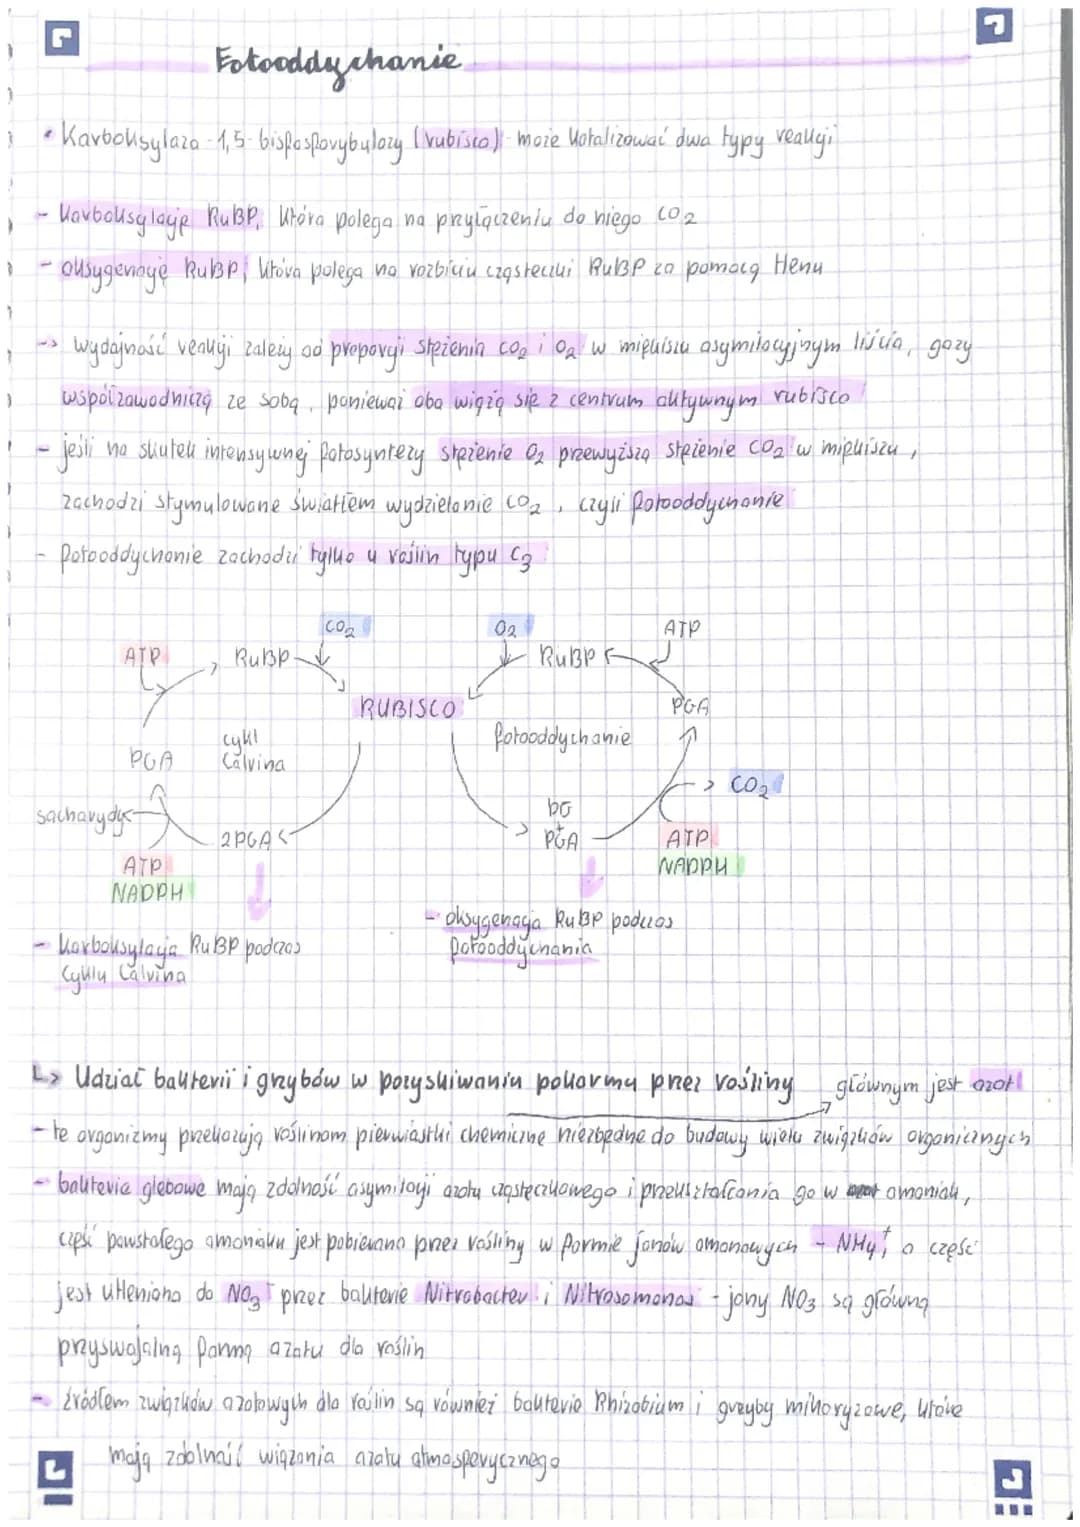 Fotooddychanie
• Karboksylaza -1,5- bisfosforybulozy (rubisco) - może katalizować dwa typy reakcji
- karboksylację RuBP, która polega na przyłączeniu do niego CO2
- oksygenację RuBP, która polega na rozbiciu cząsteczki RuBP za pomocą tlenu
-> wydajność reakcji zależy od proporcji stężenia CO2 i O2 w miękiszu asymilacyjnym liścia, gazy
współzawodniczą ze sobą, ponieważ oba wiążą się z centrum aktywnym rubisco
- jeśli na skutek intensywnej fotosyntezy stężenie O2 przewyższa stężenie CO2 w miękiszu,
zachodzi stymulowane światłem wydzielanie CO2, czyli fotooddychanie
- fotooddychanie zachodzi tylko u roślin typu C3
CO2 O2 ATP
ATP RuBP RuBP
RUBISCO PGA
cykl fotooddychanie
PGA Calvina
CO2
sacharydy PG
+
2PGA PGA ATP
ATP NADPH
NADPH
- oksygenacja RuBP podczas
fotooddychania
- karboksylacja RuBP podczas
Cyklu Calvina
↳ Udział bakterii i grzybów w pozyskiwaniu pokarmu przez rośliny głównym jest azot
- te organizmy przekazują roślinom pierwiastki chemiczne niezbędne do budowy wielu związków organicznych
- bakterie glebowe mają zdolność asymilacji azotu cząsteczkowego i przekształcania go w amoniak,
część powstałego amoniaku jest pobierana przez rośliny w formie jonów amonowych - NH4+, a część
jest utleniana do NO3- przez bakterie Nitrobacter i Nitrosomonas - jony NO3 są główną
przyswajalną formą azotu dla roślin
- źródłem związków azotowych dla roślin są również bakterie Rhizobium i grzyby mikoryzowe, które
mają zdolność wiązania azotu atmosferycznego